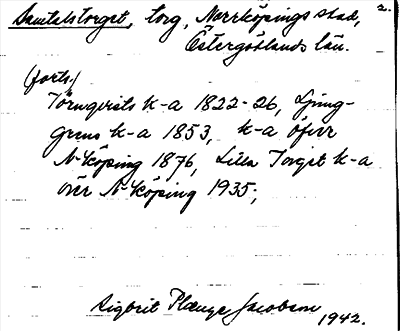 2.
Samtalstorget, torg, Norrköpings stad,
Östergötlands län.
(forts.)
Törnqvists k-a 1822-26, Ljung-
grens k-a 1853, k-a öfver
N-köping 1876, Lilla Torget k-a
över N-köping 1935;
Sigbrit Plænge Jacobson
1942.